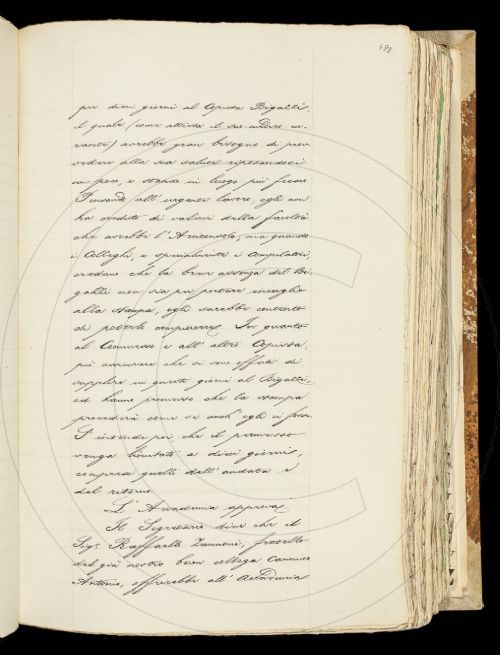 493
per dieci giorni al Copista Bigazzi,
il quale (come attesta il suo medico cu-
rante) avrebbe gran bisogno di prov-
vedere alla sua salute riposandosi
un poco, e stando in luogo più fresco.
Pensando all' urgente lavoro, egli non
ha creduto di valersi della facoltà
che avrebbe l'Arciconsolo; ma quando
i Colleghi, e specialmente i Compilatori,
credano che la breve assenza del Bi-
gazzi non sia per portare incaglio
alla stampa, egli sarebbe contento
di poterlo compiacere. In quanto
al Commesso e all' altro Copista,
può assicurare che si sono offerti di
supplire in questi giorni al Bigazzi,
ed hanno promesso che la stampa
procederà come se anch' egli ci fosse.
S' intende poi che il permesso
venga limitato a dieci giorni,
compresi quelli dell' andata e
del ritorno.
L' Accademia approva.
Il Segretario dice che il
Sigr. Raffaello Zannoni, fratello
del già nostro buon collega Canonico
Antonio, offrirebbe all' Accademia